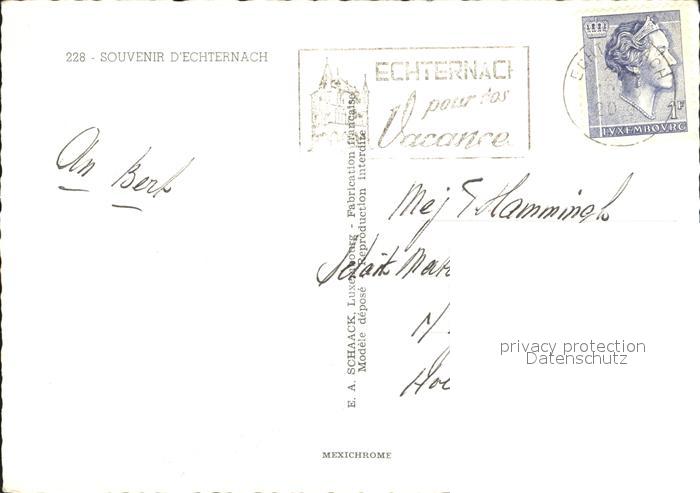 228 - SOUVENIR D'ECHTERNACH
ECHTERNACH
pour vos
Vacances
1F
LVXEMBOVRG
An Berk
Mej T Hammingh
E. A. SCHAACK, Luxembourg - Fabrication française
Modèle déposé - Reproduction interdite
privacy protection
Datenschutz
MEXICHROME